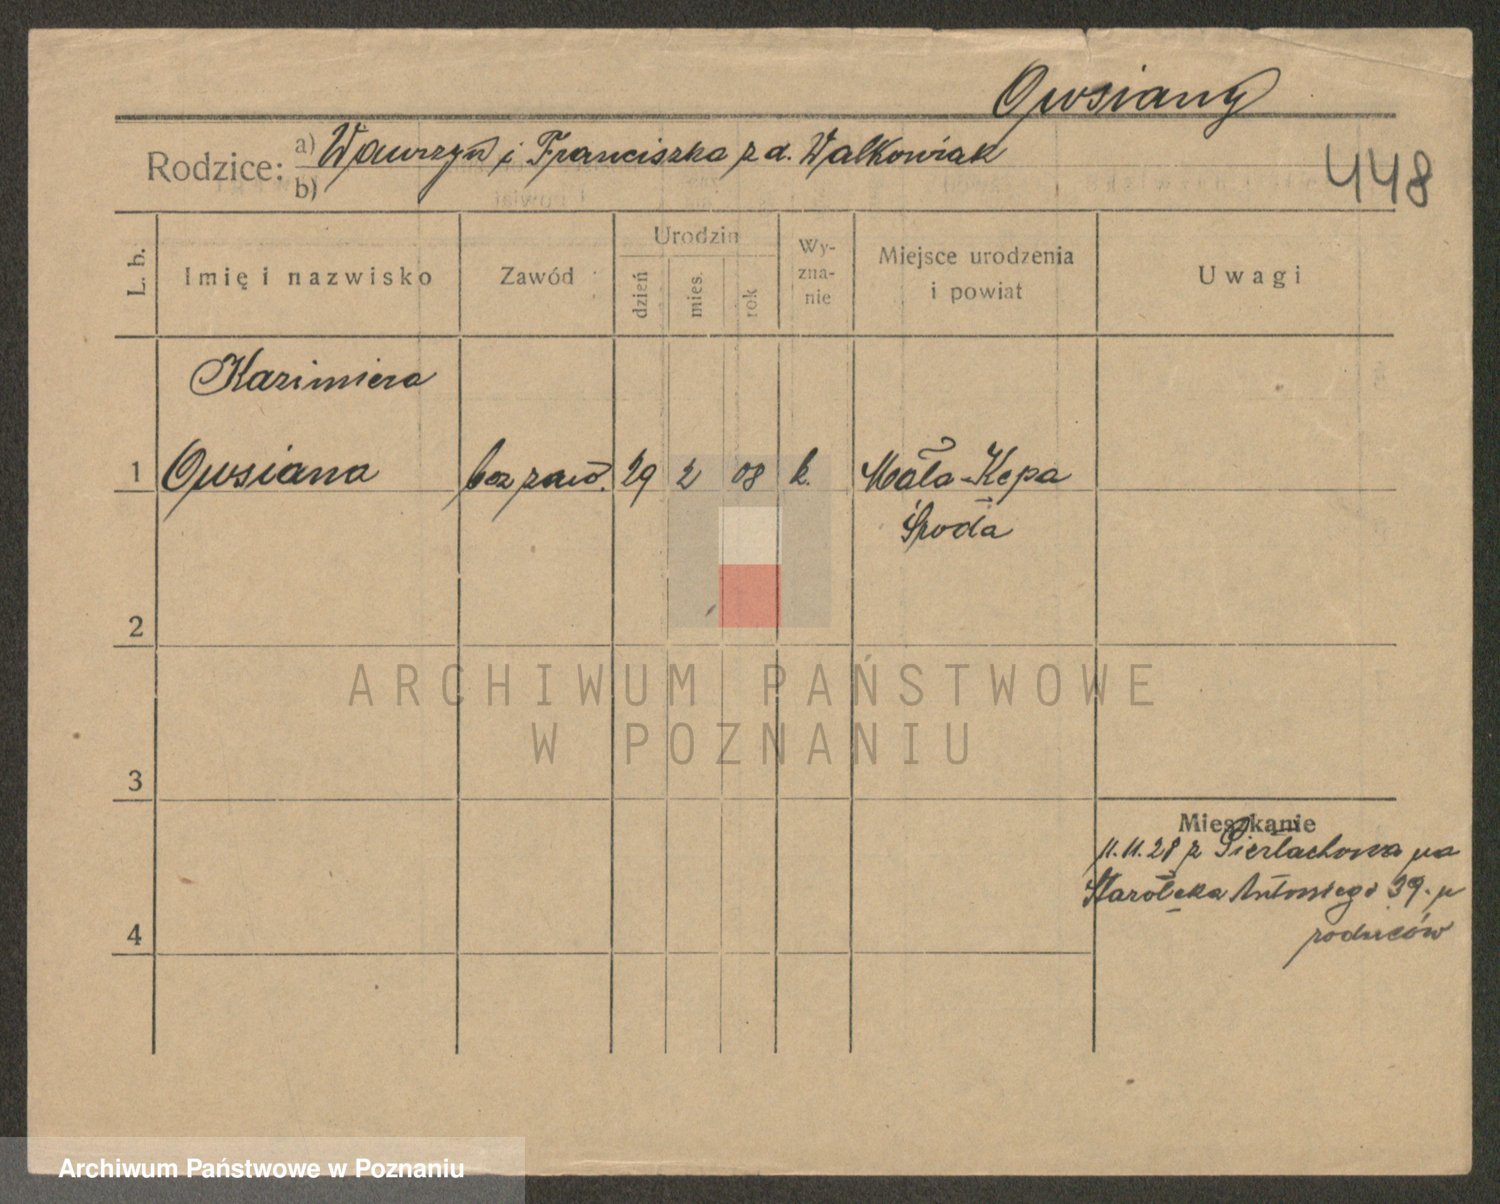 Owsiany
Rodzice: a) Wawrzyn i Franciszka z d. Walkowiak
b)
448
L. b.
Imię i nazwisko
Zawód
Urodzin
dzień
mies.
rok
Wy-
zna-
nie
Miejsce urodzenia
i powiat
Uwagi
Kazimiera
1 Owsiana bez zawo. 29 2 08 k. Mała-Kępa
Środa
2
3
4
Mieszkanie
11.11.28 z Pierzchowa na
Starołęka Antoniego 39. u
rodziców
ARCHIWUM PAŃSTWOWE
W POZNANIU
Archiwum Państwowe w Poznaniu